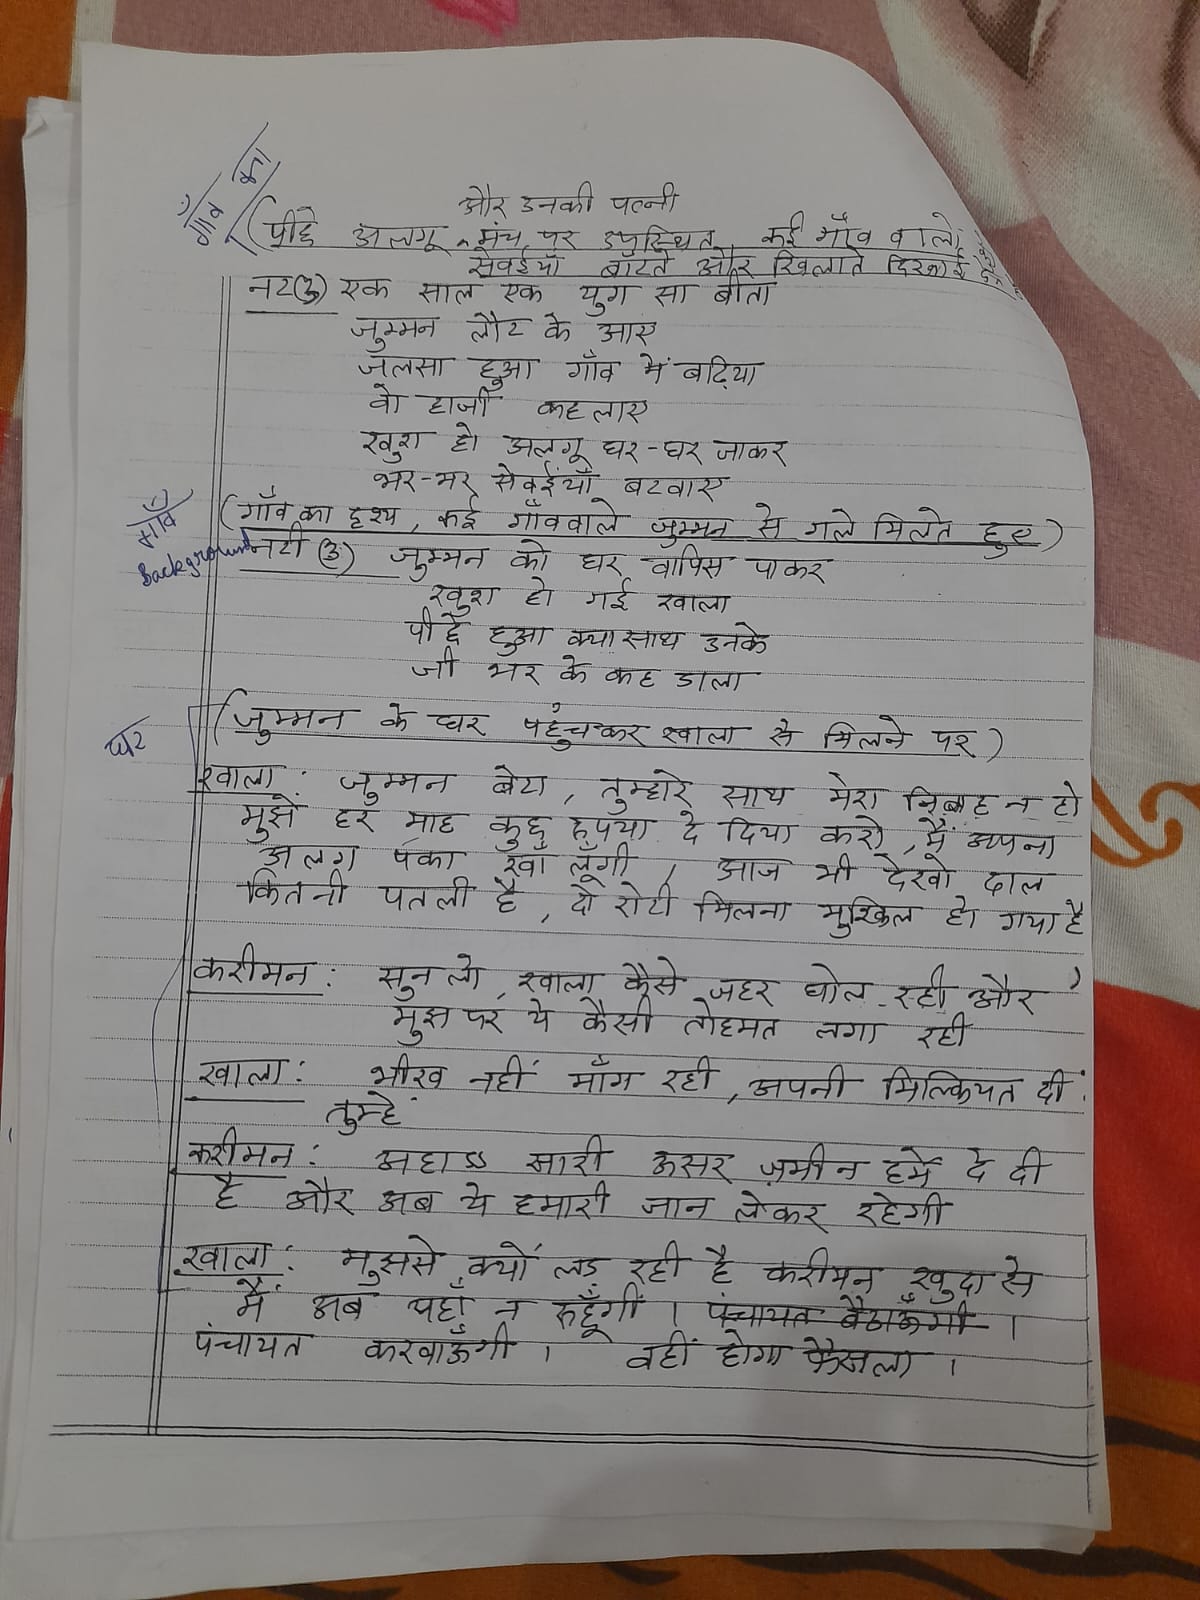 गाँव का
और उनकी पत्नी
(पीछे अलगू ^ मंच पर उपस्थित, कई गाँव वाले
सेवईयाँ बाँटते और खिलाते दिखाई
नट(3) एक साल एक युग सा बीता
जुम्मन लौट के आए
जलसा हुआ गाँव में बढ़िया
वो हाजी कहलाए
खुश हो अलगू घर-घर जाकर
भर-भर सेवईयाँ बटवाए
गाँव
(गाँव का दृश्य, कई गाँववाले जुम्मन से गले मिलते हुए)
Background
नटी (3) जुम्मन को घर वापिस पाकर
खुश हो गई खाला
पीछे हुआ क्या साथ उनके
जी भर के कह डाला
घर
(जुम्मन के घर पहुंचकर खाला से मिलने पर)
खाला: जुम्मन बेटा, तुम्हारे साथ मेरा निबाह न हो
मुझे हर माह कुछ रुपया दे दिया करो, मैं अपना
अलग पका खा लूँगी, आज भी देखो दाल
कितनी पतली है, दो रोटी मिलना मुश्किल हो गया है
करीमन: सुन लो, खाला कैसे जहर घोल रही और
मुझ पर ये कैसी तोहमत लगा रही
खाला: भीख नहीं माँग रही, अपनी मिल्कियत दी
तुम्हें
करीमन: अहाऽऽ सारी ऊसर ज़मीन हमें दे दी
है और अब ये हमारी जान लेकर रहेगी
खाला: मुझसे क्यों लड़ रही है करीमन, खुदा से
मैं अब यहाँ न रुहूँगीं। पंचायत बैठाऊँगी।
पंचायत करवाऊँगी। वहीं होगा फ़ैसला।